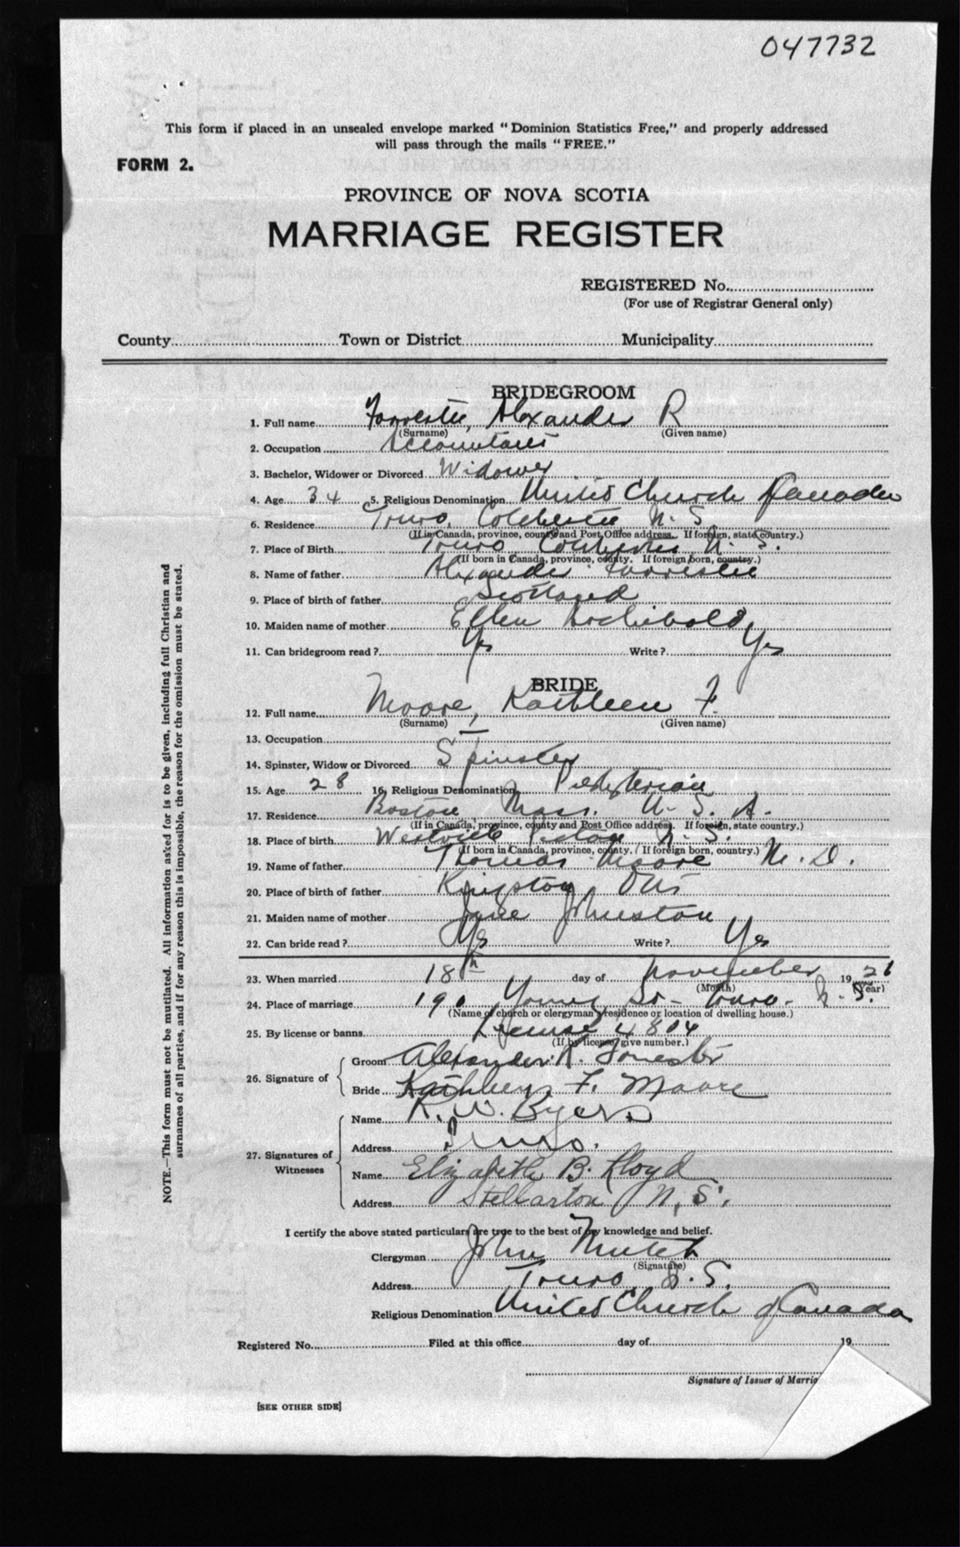 047732
This form if placed in an unsealed envelope marked "Dominion Statistics Free," and properly addressed
will pass through the mails "FREE."
FORM 2.
PROVINCE OF NOVA SCOTIA
MARRIAGE REGISTER
REGISTERED No.
(For use of Registrar General only)
County Town or District Municipality
BRIDEGROOM
1. Full name Forrester, Alexander R
(Surname) (Given name)
2. Occupation Accountant
3. Bachelor, Widower or Divorced Widower
4. Age 34 5. Religious Denomination United Church of Canada
6. Residence Truro, Colchester N. S.
(If in Canada, province, county and Post Office address. If foreign, state country.)
7. Place of Birth Truro Colchester N. S.
(If born in Canada, province, county. If foreign born, country.)
8. Name of father Alexander Forrester
9. Place of birth of father Scotland
10. Maiden name of mother Ellen Archibald
11. Can bridegroom read? Yes Write? Yes
BRIDE
12. Full name Moore, Kathleen F.
(Surname) (Given name)
13. Occupation —
14. Spinster, Widow or Divorced Spinster
15. Age 28 16. Religious Denomination Presbyterian
17. Residence Boston Mass. U. S. A.
(If in Canada, province, county and Post Office address. If foreign, state country.)
18. Place of birth Westville Pictou N. S.
(If born in Canada, province, county. If foreign born, country.)
19. Name of father Thomas Moore M. D.
20. Place of birth of father Kingston Ont
21. Maiden name of mother Johnston
22. Can bride read? Yes Write? Yes
23. When married 18th day of November 1926
(Month) (Year)
24. Place of marriage 190 Young St - Truro. N. S.
(Name of church or clergyman's residence or location of dwelling house.)
25. By license or banns License 4804
(If by license, give number.)
26. Signature of
Groom Alexander R. Forrester
Bride Kathleen F. Moore
27. Signatures of Witnesses
Name K. W. Byers
Address Truro.
Name Elizabeth B. Lloyd
Address Stellarton N. S.
I certify the above stated particulars are true to the best of my knowledge and belief.
Clergyman John Mutch
(Signature)
Address Truro N. S.
Religious Denomination United Church of Canada
Registered No. Filed at this office day of 19
Signature of Issuer of Marri
[SEE OTHER SIDE]
NOTE.—This form must not be mutilated. All information asked for is to be given, including full Christian and
surnames of all parties, and if for any reason this is impossible, the reason for the omission must be stated.